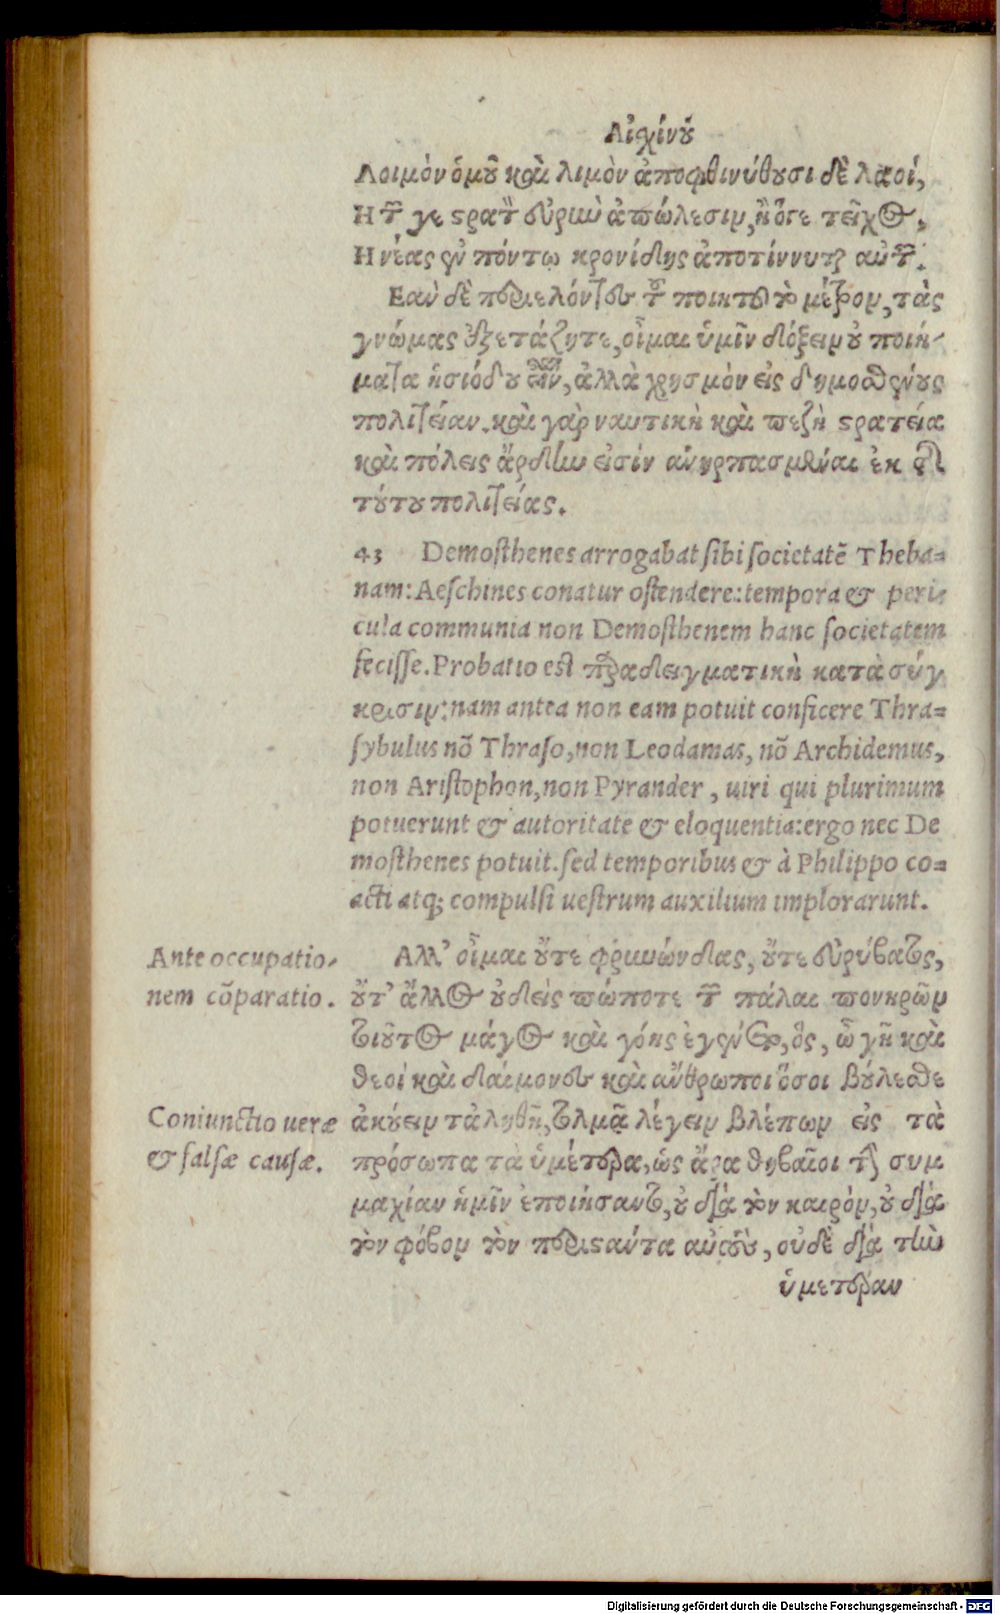 Αἰχίνου
Λοιμὸν ὁμοῦ καὶ λιμὸν ἀποφθινύθουσι δὲ λαοί,
Η τῶν γε στρατὸν εὐρὺν ἀπώλεσιν, ἢ ὅγε τεῖχος,
Η νέας ἐν πόντῳ κρονίδης ἀποτίννυται αὐτῶν.
Εαν δὲ περιελόντες τοῦ ποιητοῦ τὸ μέτρον, τὰς
γνώμας ἐξετάζητε, οἶμαι ὑμῖν δόξειν οὐ ποιή-
ματα ἡσιόδου εἶναι, ἀλλὰ χρησμὸν εἰς δημοσθένους
πολιτείαν. καὶ γὰρ ναυτικὴ καὶ πεζὴ στρατεία
καὶ πόλεις ἄρδην εἰσίν ἀνηρπασμέναι ἐκ τῆς
τούτου πολιτείας.
43 Demosthenes arrogabat sibi societatē Theba=
nam: Aeschines conatur ostendere: tempora & peri-
cula communia non Demosthenem hanc societatem
fecisse. Probatio est παραδειγματικὴ κατὰ σύγ
κρισιν: nam antea non eam potuit conficere Thra=
sybulus nō Thraso, non Leodamas, nō Archidemus,
non Aristophon, non Pyrander, uiri qui plurimum
potuerunt & autoritate & eloquentia: ergo nec De
mosthenes potuit. sed temporibus & à Philippo co=
acti atq; compulsi uestrum auxilium implorarunt.
Ante occupatio-
nem cōparatio.
Αλλ' οἶμαι οὔτε φρυνώνδας, οὔτε εὐρύβατος,
οὔτ' ἄλλος οὐδεὶς πώποτε τῶν πάλαι πονηρῶν
τοιοῦτος μάγος καὶ γόης ἐγένετο, ὃς, ὦ γῆ καὶ
θεοὶ καὶ δαίμονες καὶ ἄνθρωποι ὅσοι βούλεσθε
Coniunctio ueræ
& falsæ causæ.
ἀκούειν τἀληθῆ, τολμᾷ λέγειν βλέπων εἰς τὰ
πρόσωπα τὰ ὑμέτερα, ὡς ἄρα θηβαῖοι τὴν συμ
μαχίαν ἡμῖν ἐποιήσαντο, οὐ διὰ τὸν καιρὸν, οὐ διὰ
τὸν φόβον τὸν περιστάντα αὐτοὺς, οὐδὲ διὰ τὴν
ὑμετέραν
Digitalisierung gefördert durch die Deutsche Forschungsgemeinschaft - DFG